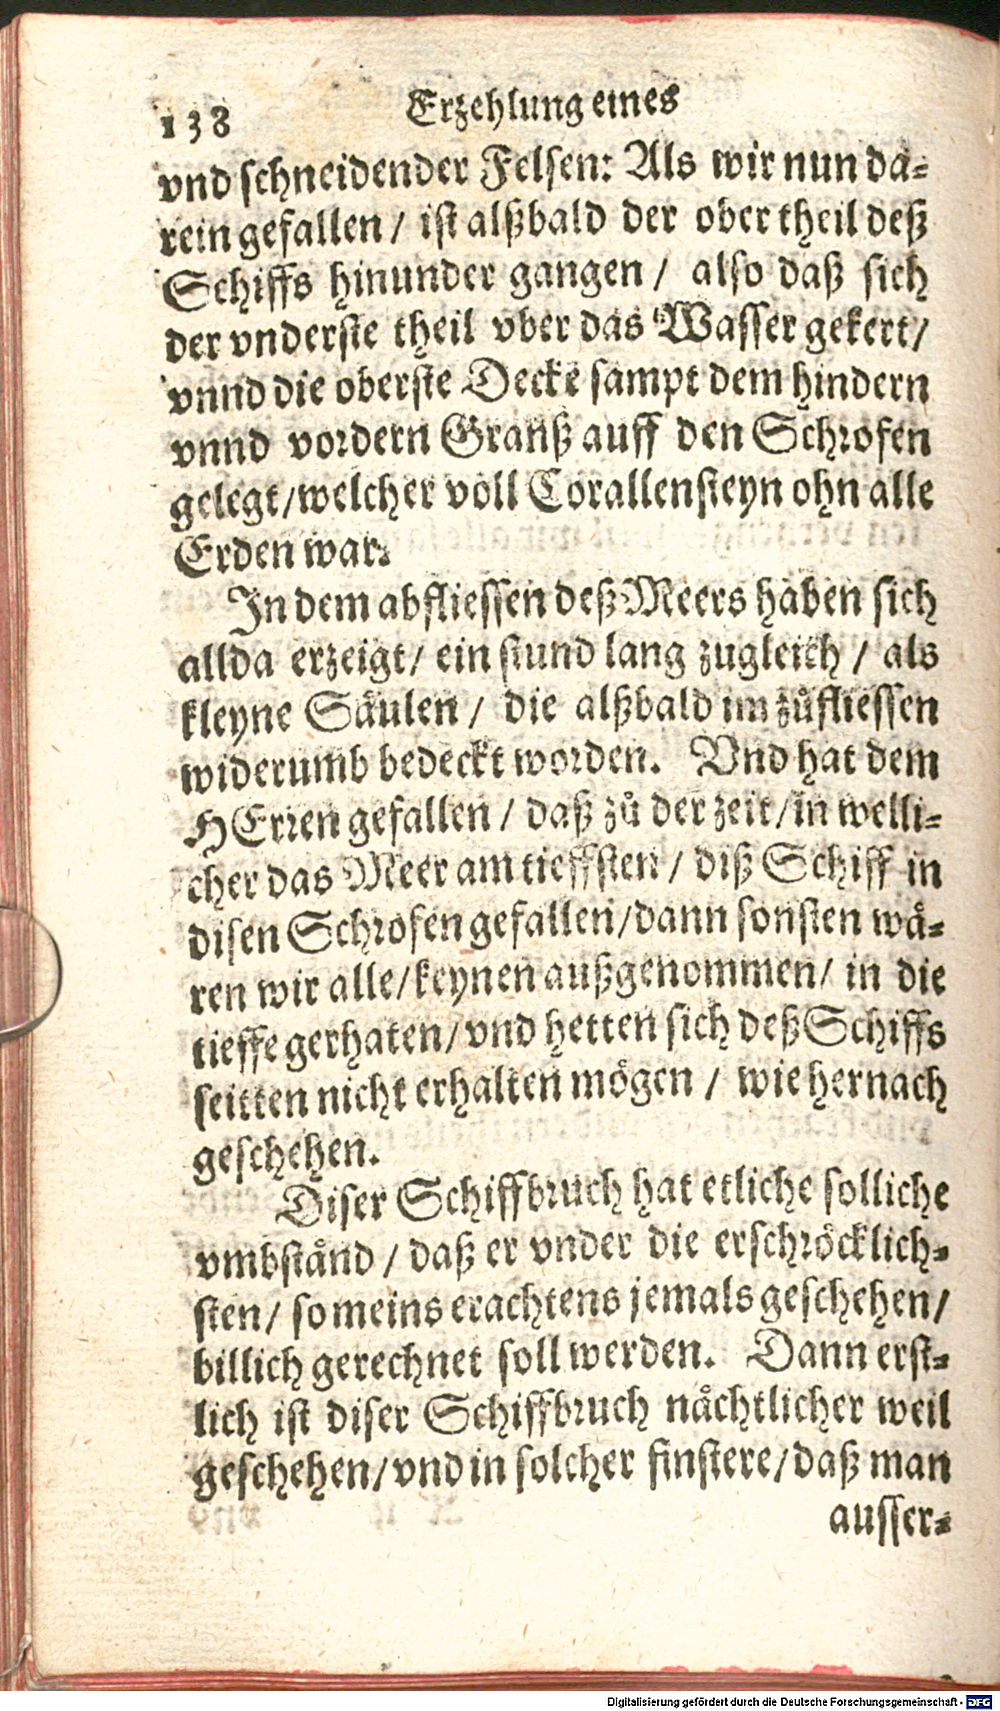 138 Erzehlung eines
vnd schneidender Felsen: Als wir nun da-
rein gefallen / ist alßbald der ober theil deß
Schiffs hinunder gangen / also daß sich
der vnderste theil vber das Wasser gekert /
vnnd die oberste Decke sampt dem hindern
vnnd vordern Granß auff den Schrofen
gelegt / welcher voll Corallensteyn ohn alle
Erden war.
In dem abfliessen deß Meers haben sich
allda erzeigt / ein stund lang zugleich / als
kleyne Säulen / die alßbald im zůfliessen
widerumb bedeckt worden. Vnd hat dem
HErren gefallen / daß zů der zeit / in welli-
cher das Meer am tieffsten / diß Schiff in
disen Schrofen gefallen / dann sonsten wå-
ren wir alle / keynen außgenommen / in die
tieffe gerhaten / vnd hetten sich deß Schiffs
seitten nicht erhalten mögen / wie hernach
geschehen.
Diser Schiffbruch hat etliche solliche
vmbstånd / daß er vnder die erschröcklich-
sten / so meins erachtens jemals geschehen /
billich gerechnet soll werden. Dann erst-
lich ist diser Schiffbruch nåchtlicher weil
geschehen / vnd in solcher finstere / daß man
ausser-
Digitalisierung gefördert durch die Deutsche Forschungsgemeinschaft - DFG